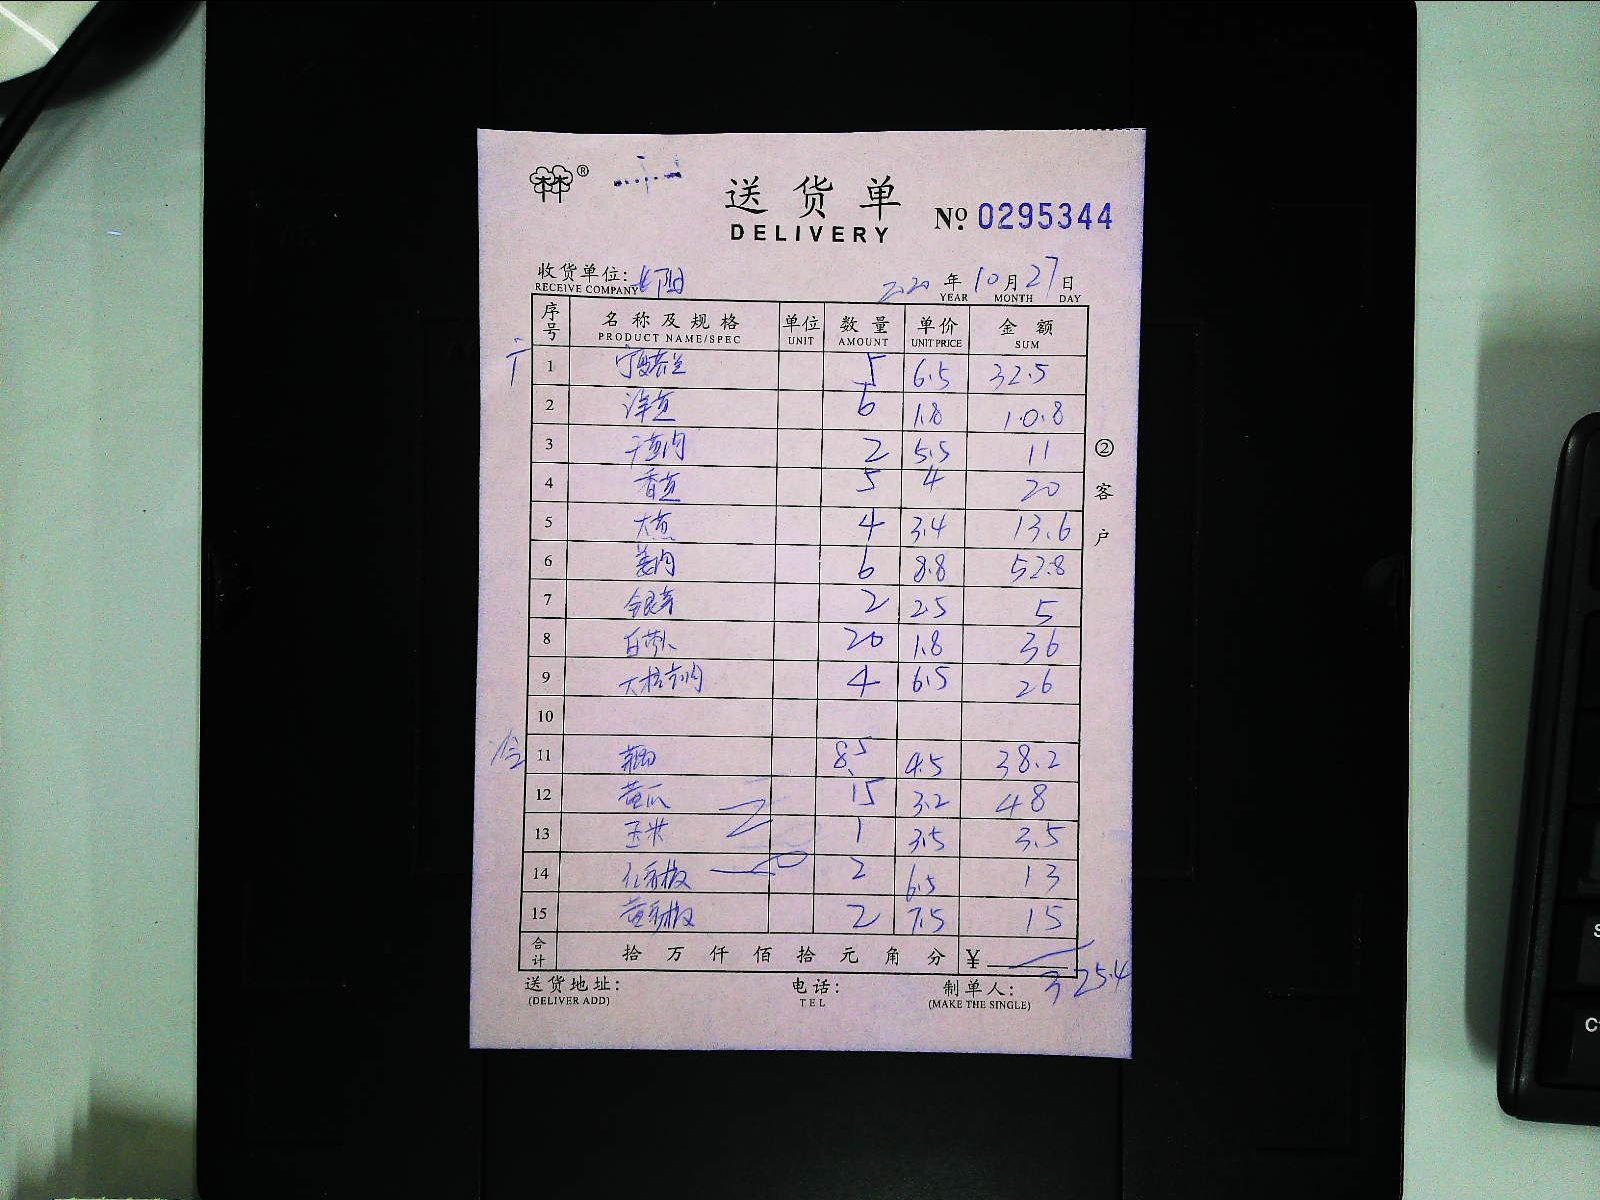 林®
送货单
DELIVERY
№ 0295344
收货单位:
RECEIVE COMPANY
2020 年 10 月 27 日
YEAR MONTH DAY
序号 名称及规格 单位 数量 单价 金额
PRODUCT NAME/SPEC UNIT AMOUNT UNIT PRICE SUM
1 5 6.5 32.5
2 洋芋 6 1.8 10.8
3 2 5.5 11
4 5 4 20
5 4 3.4 13.6
6 姜肉 6 8.8 52.8
7 银芽 2 2.5 5
8 20 1.8 36
9 4 6.5 26
10
11 8.5 4.5 38.2
12 黄瓜 15 3.2 48
13 玉米 1 3.5 3.5
14 2 6.5 13
15 黄彩椒 2 7.5 15
合计 拾 万 仟 佰 拾 元 角 分 ¥ 325.4
送货地址: 电话: 制单人:
(DELIVER ADD) TEL (MAKE THE SINGLE)
②客户